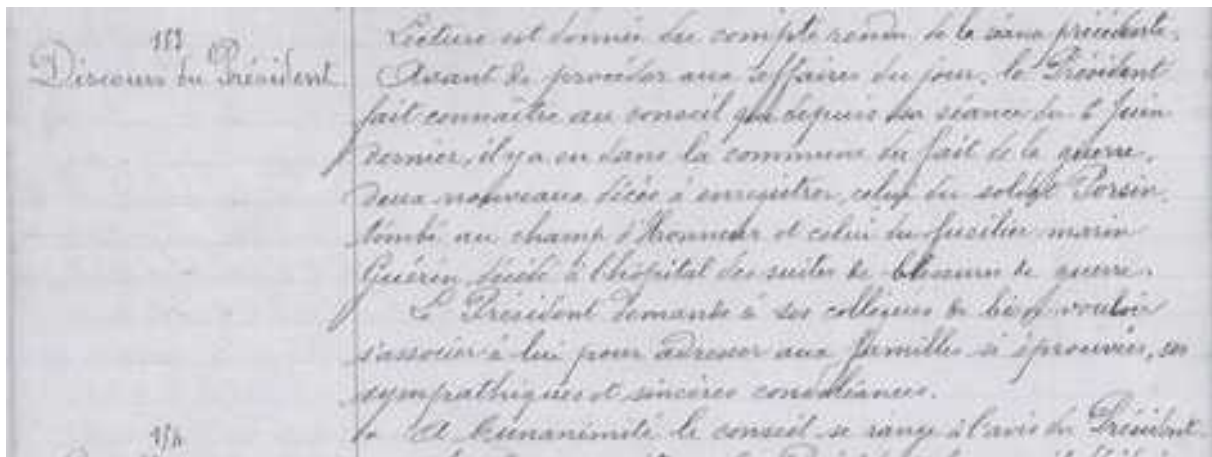 153
Discours du Président
Lecture est donnée du compte rendu de la séance précédente.
Avant de procéder aux affaires du jour, le Président
fait connaître au conseil que depuis sa séance du 6 juin
dernier, il y a eu dans la commune du fait de la guerre,
deux nouveaux décès à enregistrer, celui du soldat Porsin
tombé au champ d'honneur et celui du fusilier marin
Guérin, décédé à l'hôpital des suites de blessures de guerre.
Le Président demande à ses collègues de bien vouloir
s'associer à lui pour adresser aux familles si éprouvées, ses
sympathiques et sincères condoléances.
154
A l'unanimité le conseil se range à l'avis du Président.